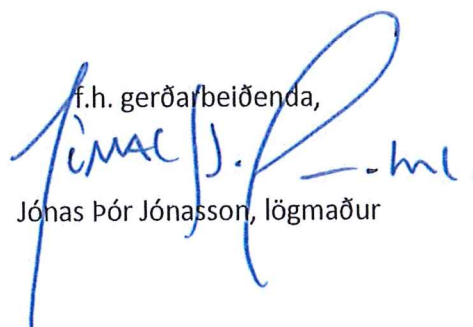 f.h. gerðarbeiðenda,
Jónas Þór Jónasson, lögmaður